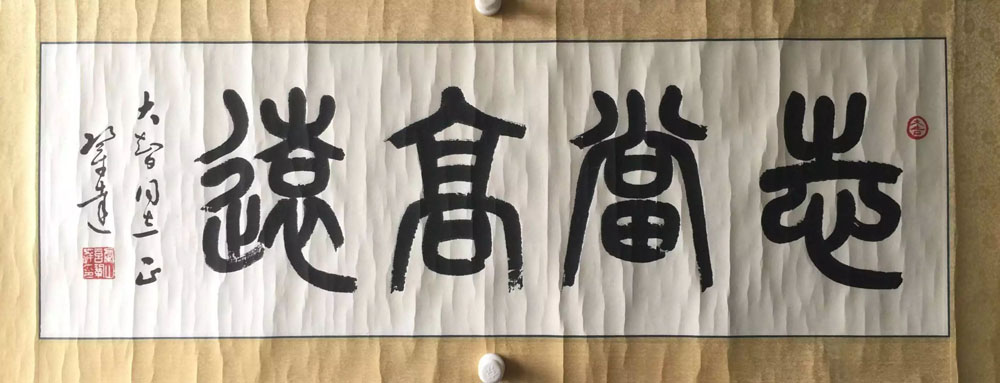 志當高遠
大智同志正